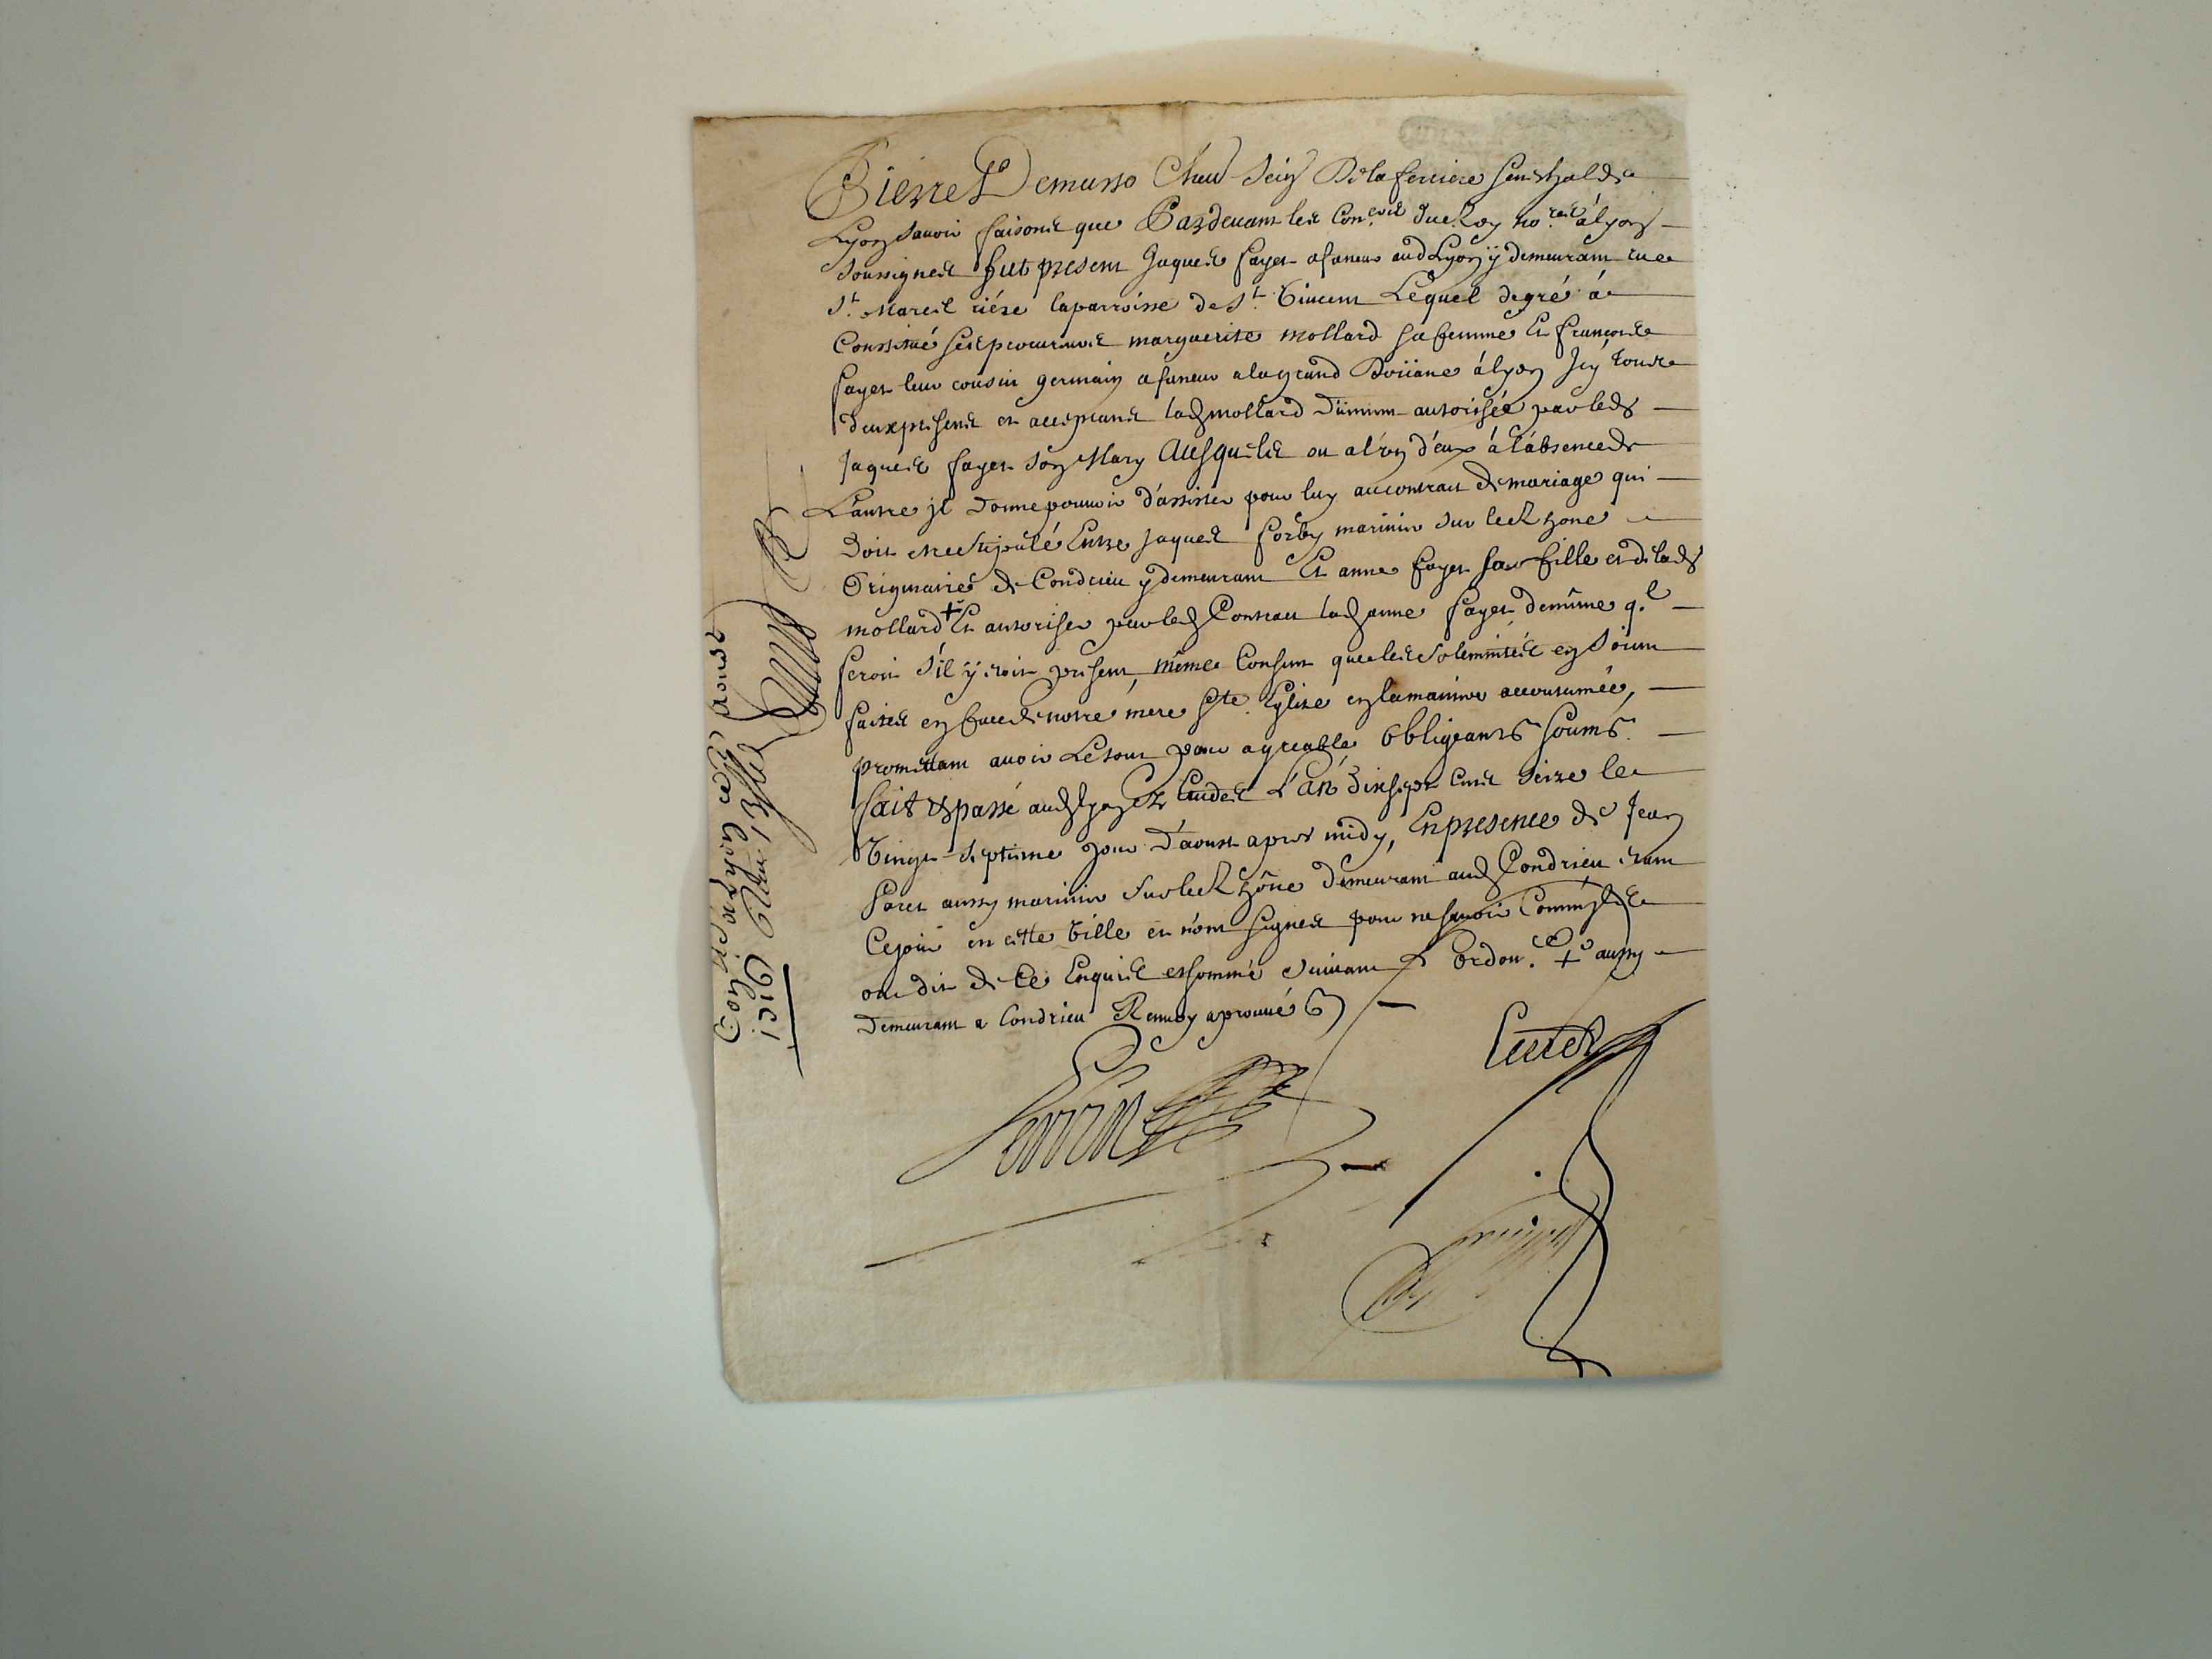 Pierre Demasso Chevr Seigr De la ferriere senéchal de
Lyon savoir faisons que Pardevant les Coners du Roy nores a lyon
soussignes fut present Jaques fayet afaneur aud Lyon y demeurant rue
St. Marcel riére la parroisse de St. Vincent Lequel de gré a
Constitué ses procureurs marguerite mollard sa femme Et françois
fayet leur cousin germain afaneur a la grand Doüane a lyon Icy tous
deux presens et acceptans lad mollard düment autorisée par led
Jaques fayet son Mary Ausquels ou a l'un d'eux a l'absence de
L'autre il Donne pouvoir d'assister pour luy au contrat de mariage qui
Doit etre stipulé Entre Jaques forby marinier sur le Rhone
Originaire de Condrieu y demeurant Et anne fayet sa fille et de lad
mollard + Et autoriser par led Contrat lad anne fayet de même q.l
feroit s'il y etoit present, même Consent que les solemnités en soient
faites en face de notre mere ste. Eglise en la maniere accoutumée,
promettant avoir Le tout pour agreable Obligeants soums.
fait et passé aud lyon Ez Etudes L'an dix sept Cens seize le
Vingt septieme jour d'aoust apres midy, En presence de Jean
foret aussy marinier sur le Rhône demeurant aud Condrieu etant
Ce jour en cette Ville et n'ont signes pour ne savoir Comme ils
ont dit de Ce Enquis et sommé suivant l'ordon.ce + aussy
Demeurant a Condrieu Renvoy aprouvé
Perrin